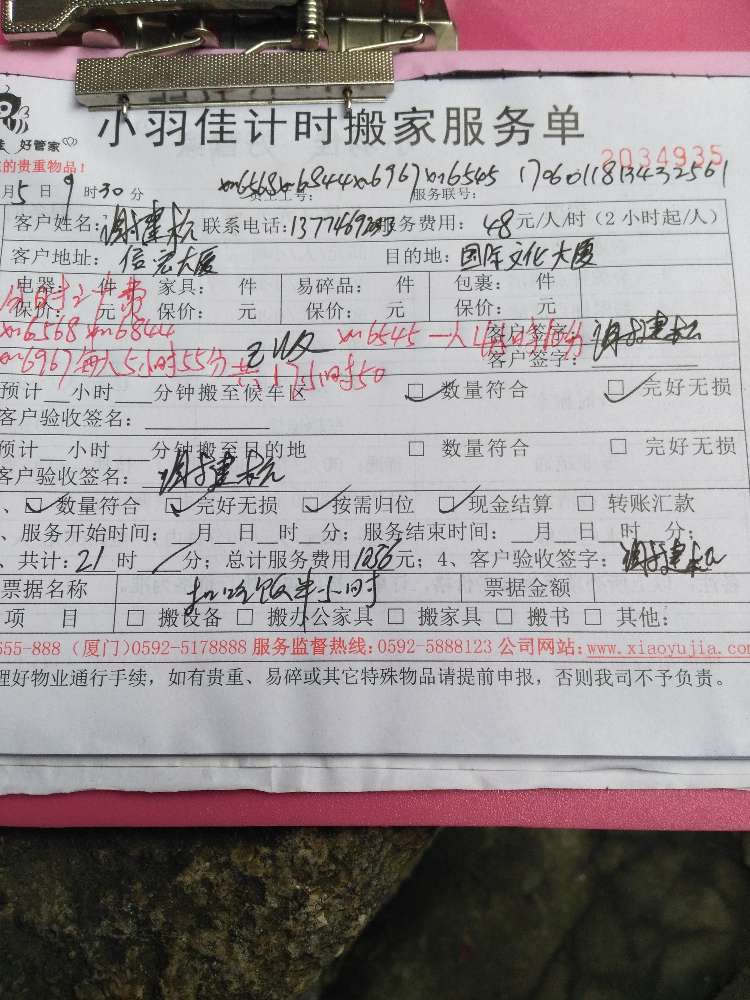 好管家
的贵重物品!
小羽佳计时搬家服务单
2034935
月5日9时30分 员工工号: xm6568xm6844xm6967xm6545 服务联号: 1706011813432561
客户姓名: 谢建杭 联系电话: 服务费用: 48元/人/时(2小时起/人)
客户地址: 信宏大厦 目的地: 国际文化大厦
电器: 件 家具: 件 易碎品: 件 包裹: 件
保价: 元 保价: 元 保价: 元 保价: 元
xm6568 xm6844 xm6545一人 客户签字: 谢建杭
xm6967每人5小时55分 已收 共17小时50 客户签字:
预计__小时__分钟搬至候车区 数量符合 完好无损
客户验收签名:
预计__小时__分钟搬至目的地 数量符合 完好无损
客户验收签名: 谢建杭
、数量符合 完好无损 按需归位 现金结算 转账汇款
、服务开始时间: __月__日__时__分; 服务结束时间: __月__日__时__分;
、共计: 21时 / 分; 总计服务费用1056元; 4、客户验收签字: 谢建杭
票据名称 扣吃饭半小时 票据金额
项目 搬设备 搬办公家具 搬家具 搬书 其他:
555-888 (厦门)0592-5178888 服务监督热线:0592-5888123 公司网站:www.xiaoyujia.com
理好物业通行手续,如有贵重、易碎或其它特殊物品请提前申报,否则我司不予负责。